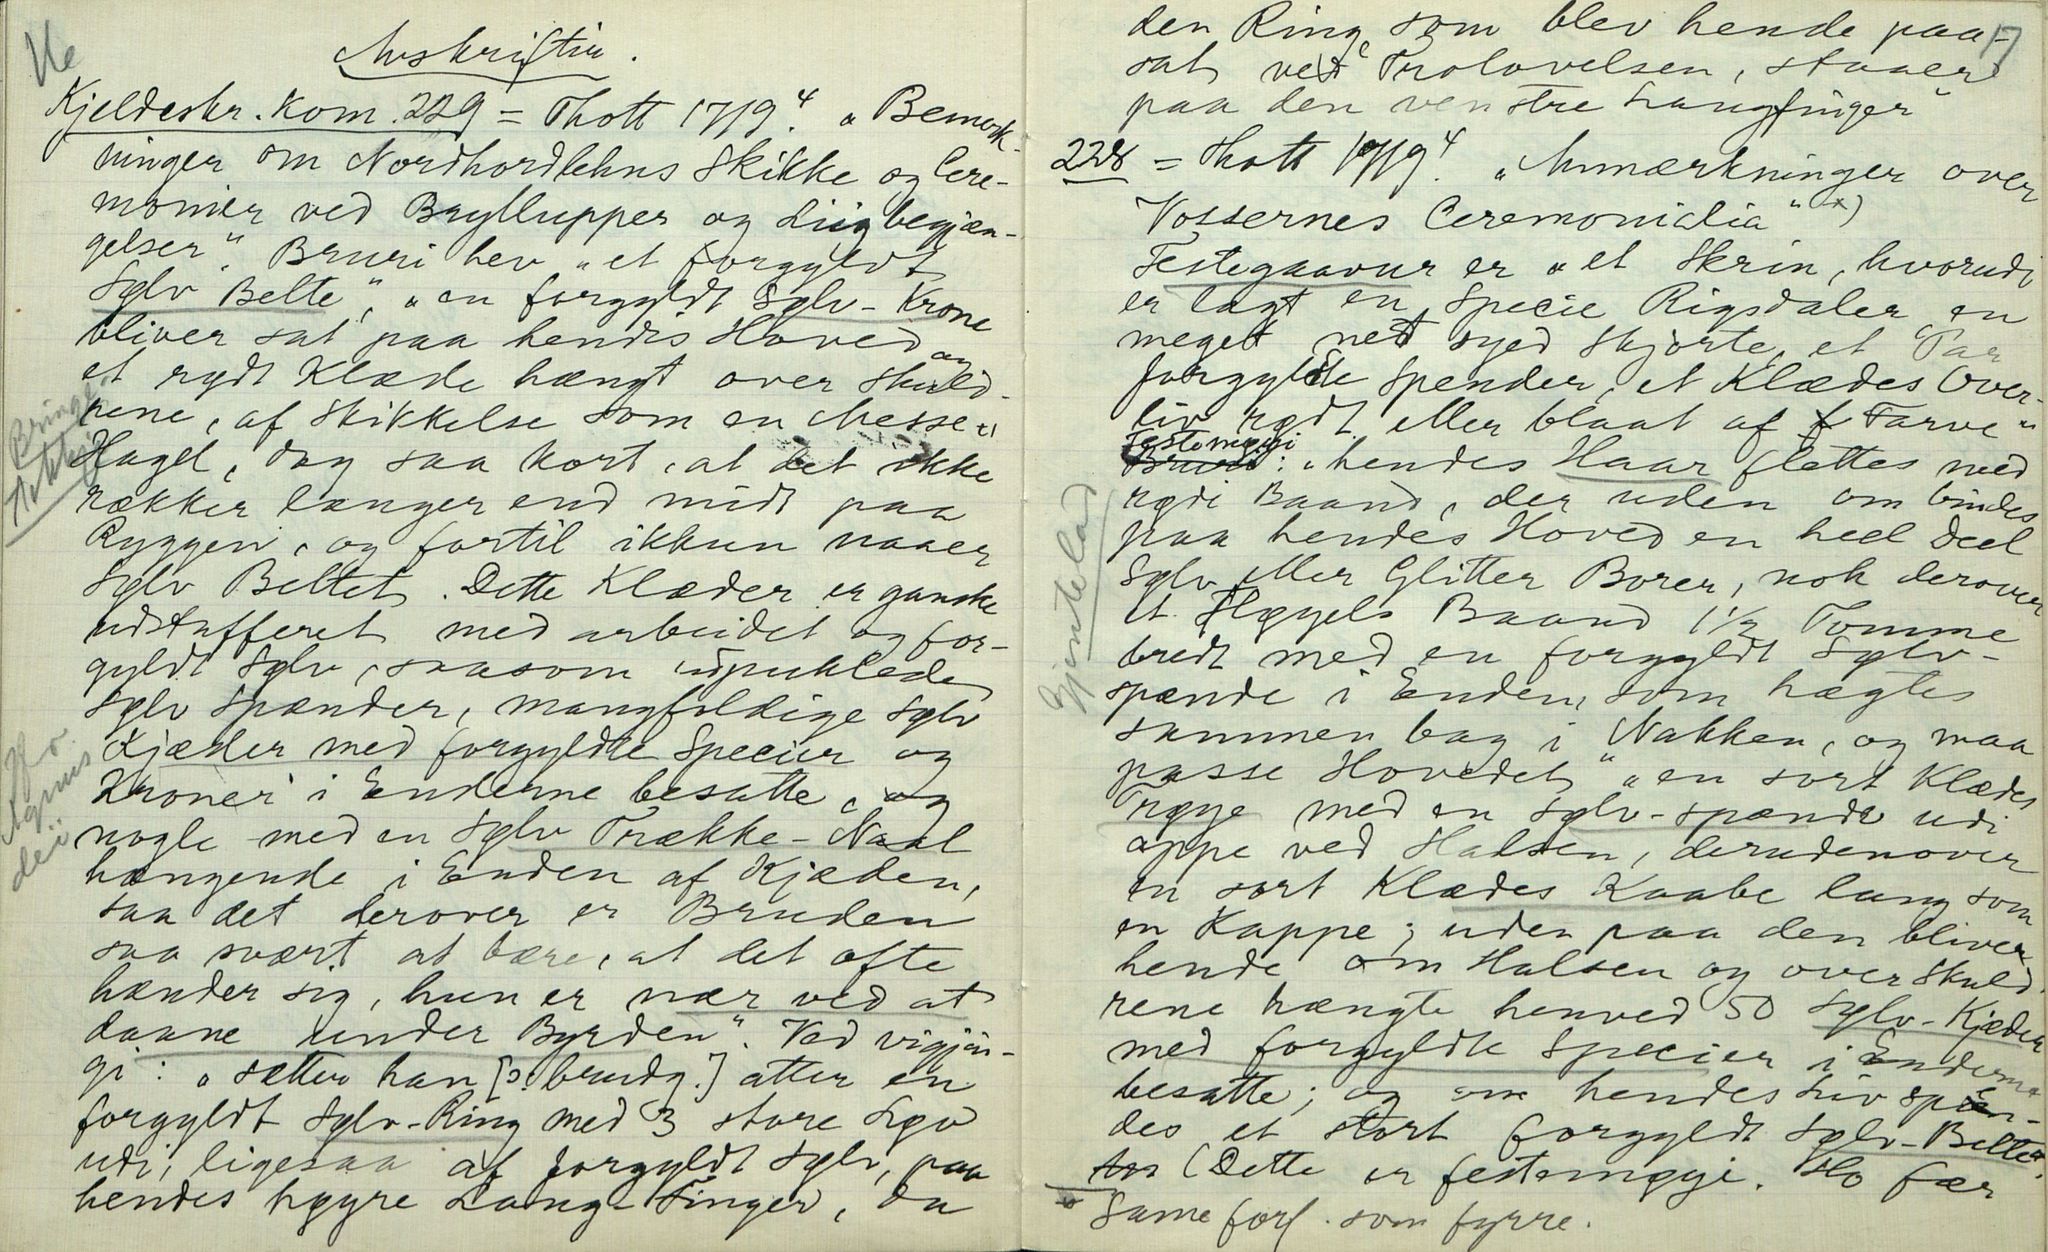 Avskrifter.
Kjeldeskr. Kom. 229 = Thott 1719.⁴ „Bemerk-
ninger om Nordhordlehns Skikke og Cere-
monier ved Bryllupper og Liigbegjæn-
gelser". Bruri hev „et forgyldt
Sølv Belte", „en forgyldt Sølv-Krone
bliver sat paa hendes Hoved og
et rødt Klæde hængt over Skuld-
rene, af Skikkelse som en Messe-
Hagel, dog saa kort, at det ikke
rækker længer end midt paa
Ryggen, og fortil ikkun naaer
Sølv Beltet. Dette Klæder er ganske
udstafferet med arbeidet og for-
gyldt Sølv, saasom udpuklede
Sølv Spænder, mangfoldige Sølv
Kjæder med forgyldte Specier og
Kroner i Enderne besatte, og
nogle med en Sølv Trække-Naal
hængende i Enden af Kjæden,
saa det derover er Bruden
saa svært at bære, at det ofte
hænder sig, hun er nær ved at
daane under Byrden". Ved vigjin-
gi: „sætter han [ɔ: brudg.] atter en
forgyldt Sølv-Ring med 3 store Løv
udi, ligesaa af forgyldt Sølv, paa
hendes høyre Lange Finger, da
Bringe-
Agnus
dei
17
den Ring som blev hende paa-
sat ved Trolovelsen, staaer
paa den venstre Langfinger"
228 = Thott 1719.⁴ „Anmærkninger over
Vossernes Ceremonialia" *)
Festegaavur er „et Skrin, hvorudi
er lagt en Specie Rigsdaler en
meget net syed Skjorte, et Par
forgyldte Spender, et Klædes Over-
liv rødt eller blaat af Farve"
Festemøyi
: „hendes Haar flettes med
røde Baand, der uden om bindes
paa hendes Hoved en heel Deel
Sølv eller Glitter Borer, nok derover
et Fløyels Baand 1½ Tomme
bredt med en forgyldt Sølv-
spænde i Enden, som hægtes
sammen bag i Nakken, og maa
passe Hovedet" „en sort Klædes
Trøye med en Sølv-spænde udi
oppe ved Halsen, derudenover
en sort Klædes Kaabe lang som
en Kappe; uden paa den bliver
hende om Halsen og over Skuld-
rene hængte henved 50 Sølv-Kjæder
med forgyldte Specier i Enderne
besatte; og om hendes Liv spæn-
des et stort forgyldt Sølv-Belte".
(Dette er festemøyi. Ho fær
* Same forf. som fyrre.
Gjenteled